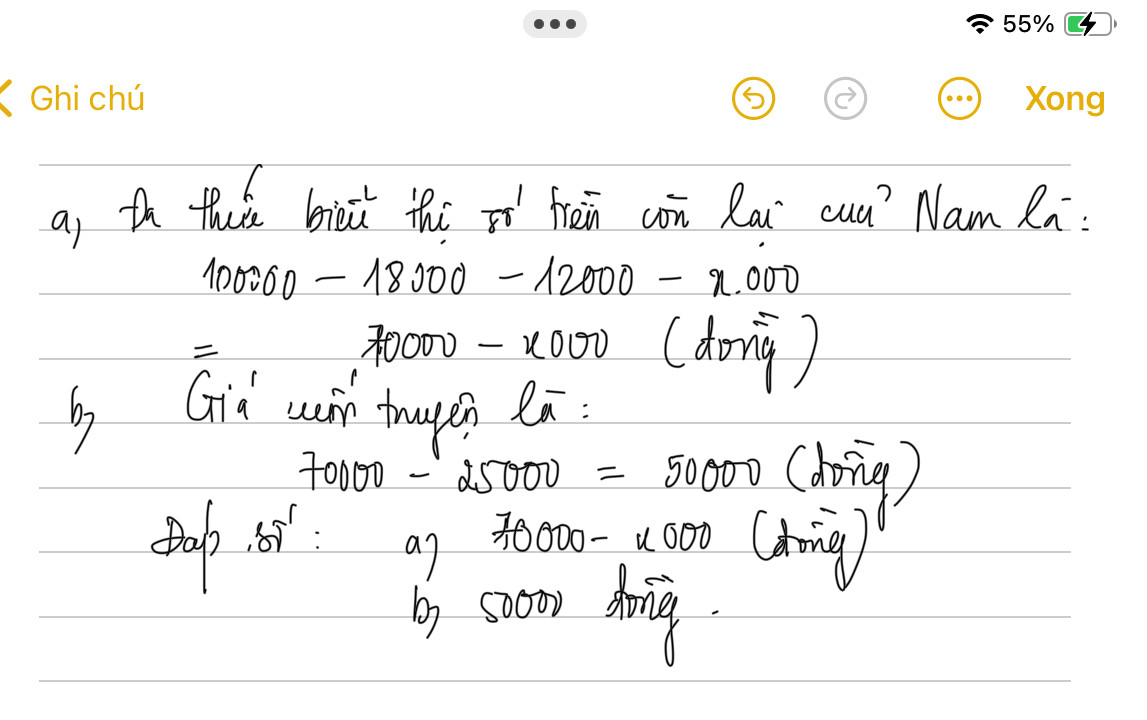 55%
Ghi chú
Xong
a) Đa thức biểu thị số tiền còn lại của Nam là:
100000 - 18000 - 12000 - x.000
= 70000 - x000 (đồng)
b) Giá cuốn truyện là:
70000 - 25000 = 50000 (đồng)
Đáp số: a) 70000 - x000 (đồng)
b) 50000 đồng.